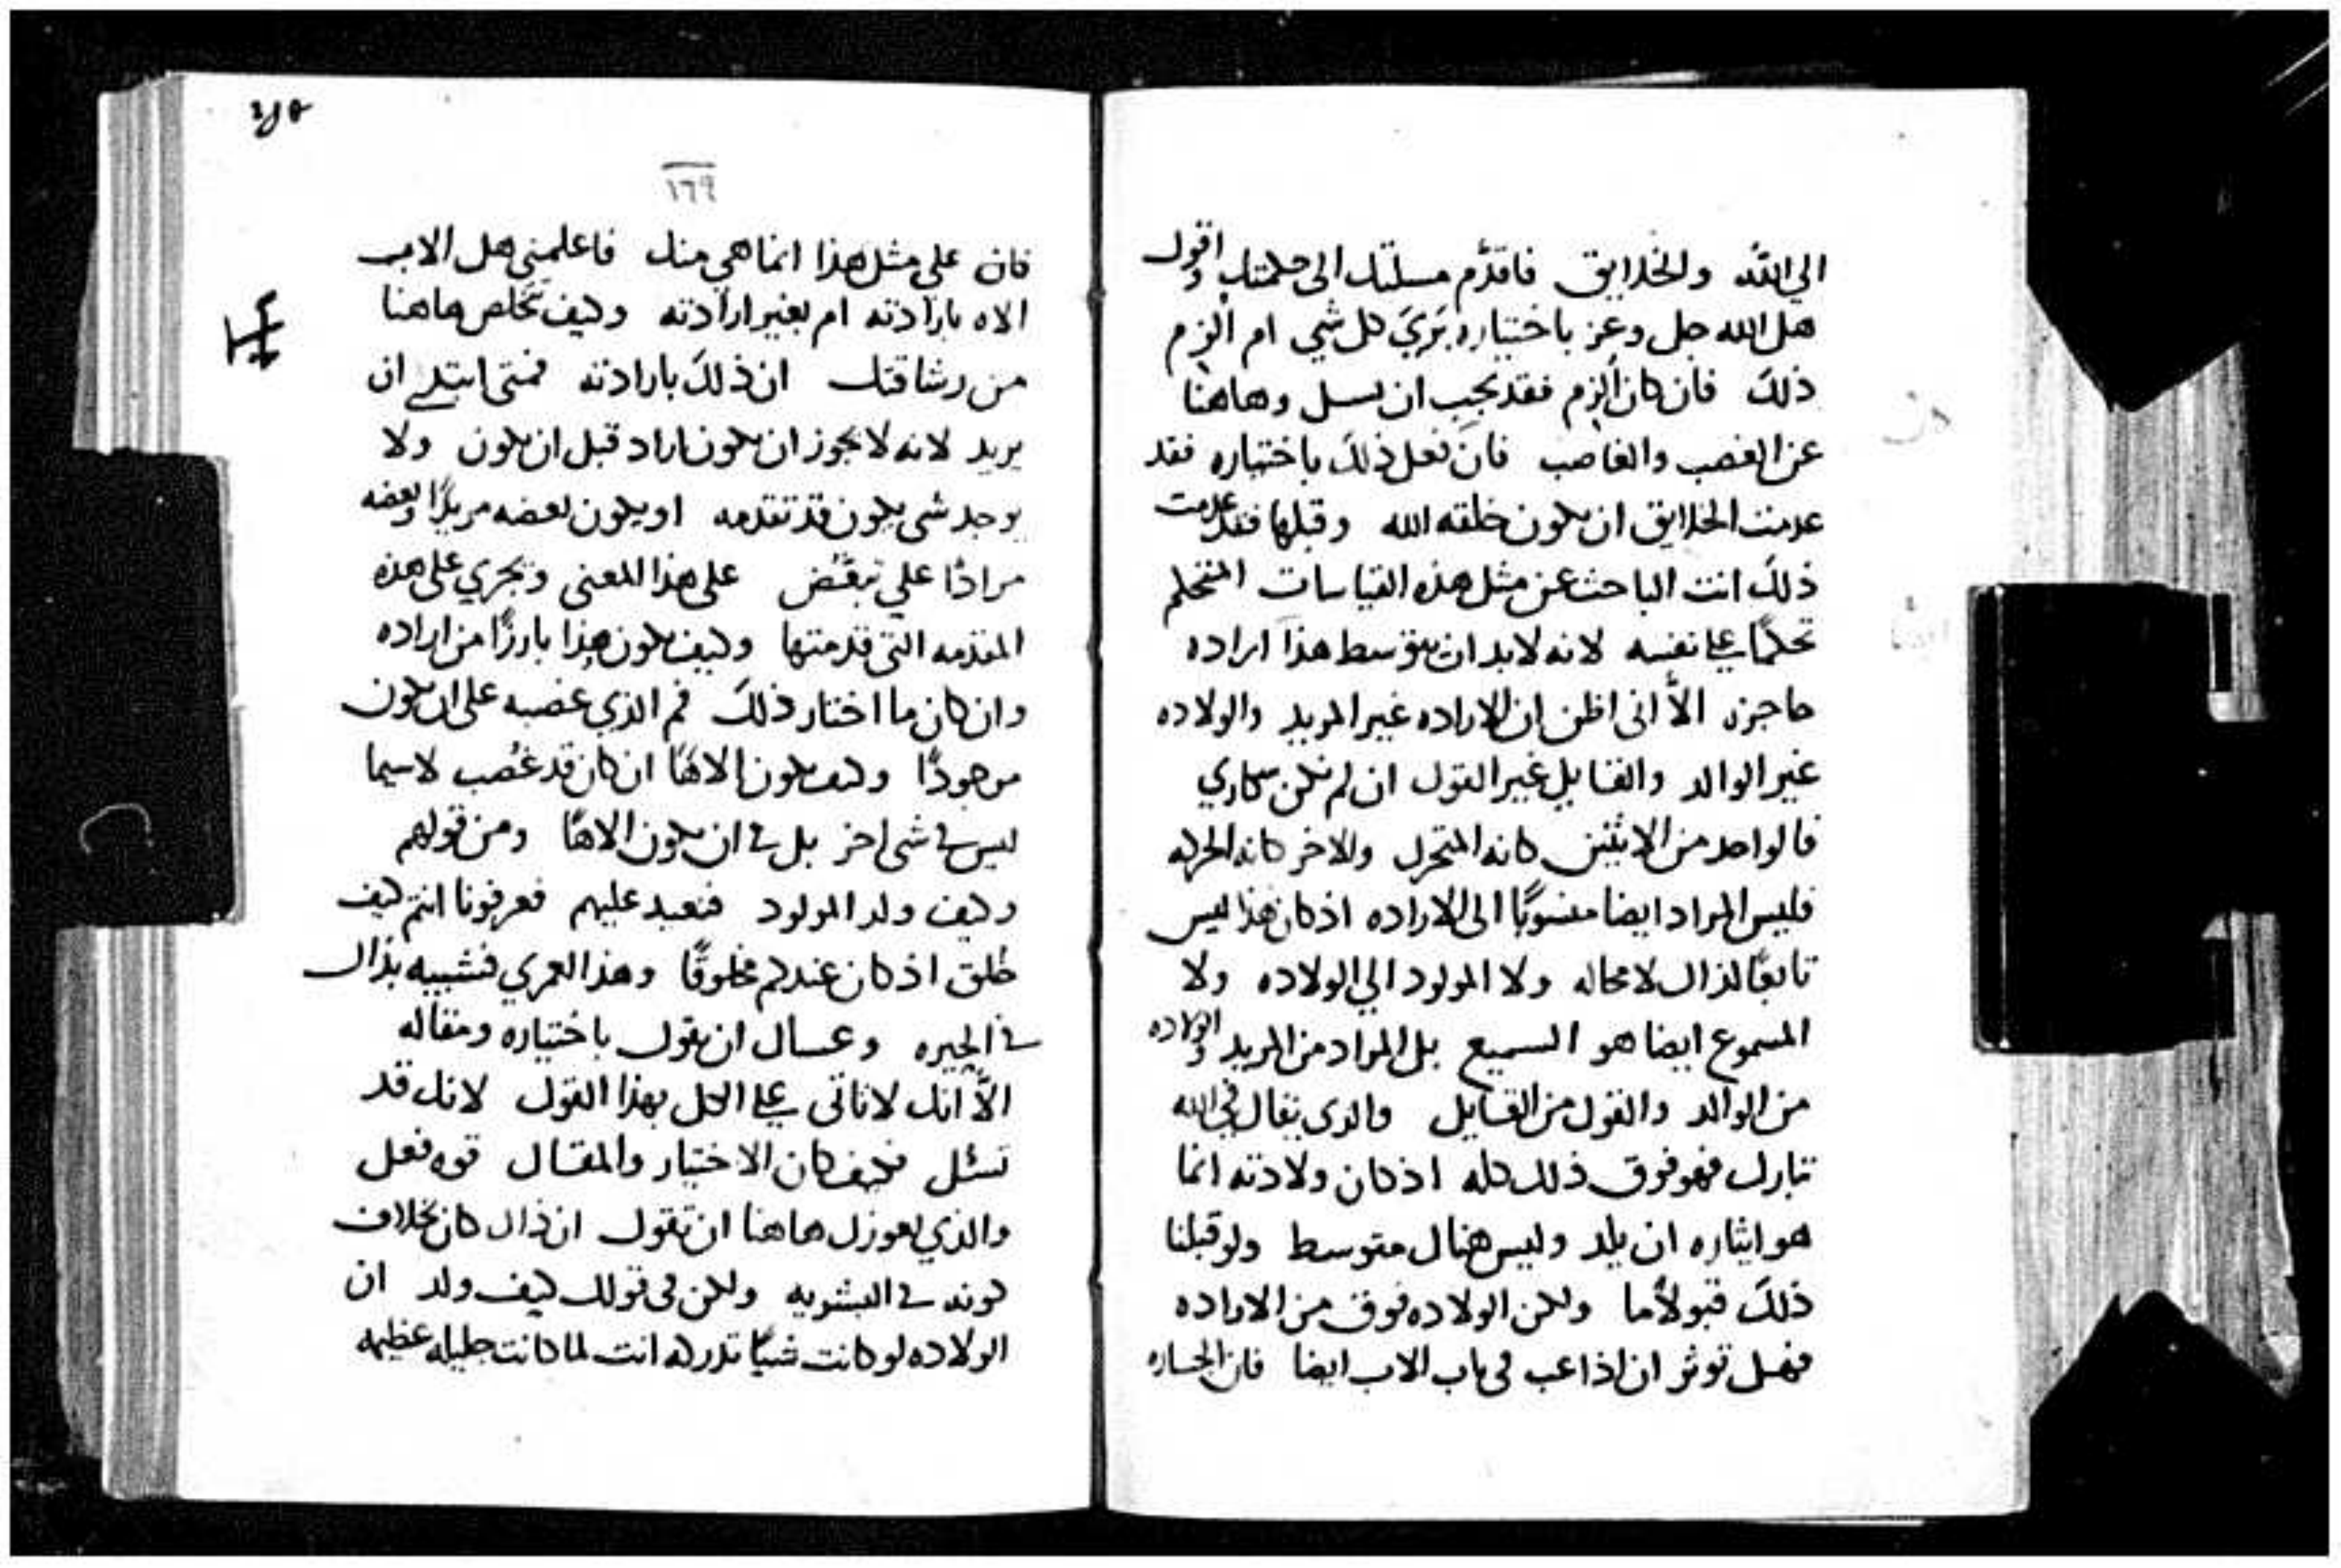 الي الله والخلايق فاقدّم مسلتك الى حكمتك واقول
هل الله جل وعز باختياره بَرَيَ كل شي ام الزم
ذلك فان كان الزم فقد يجب ان يسل وهاهنا
عن الغصب والغاصب فان فعل ذلك باختياره فقد
عدمت الخلايق ان يكون خلقه الله وقبلها فقد عدمت
ذلك انت الباحث عن مثل هذه القياسات المتحكم
تحكمًا على نفسه لانه لابد ان يتوسط هذا اراده
حاجزه الاّ انى اظن ان الاراده غير المريد والولاده
غير الوالد والقايل غير القول ان لم نكن سكاري
فالواحد من الاثنين كانه المتحرك والاخر كانه الحركه
فليس المراد ايضا منسوبًا الى الاراده اذ كان هذا ليس
تابعًا لذاك لا محاله ولا المولود الي الولاده ولا
المسموع ايضا هو السميع بل المراد من المريد والولاده
من الوالد والقول من القايل والدى يقال في الله
تبارك فهو فوق ذلك كله اذ كان ولادته انما
هو ايثاره ان يلد وليس هناك متوسط ولو قبلنا
ذلك قبولاً ما ولكن الولاده فوق من الاراده
فهل توثر ان اذاعب في باب الاب ايضا فان الجساره
١٦٩
فان علي مثل هذا انما هي منك فاعلمني هل الاب
الاه بارادته ام بغير ارادته وكيف تخلص هاهنا
من رشاقتك ان ذلك بارادته فمتى ابتدى ان
يريد لانه لا يجوز ان يكون اراد قبل ان يكون ولا
يوجد شى يكون قد تقدمه او يكون بعضه مريدًا وبعضه
مرادًا علي تبعّض على هذا المعنى ويجري على هذه
المقدمه التى قدمتها وكيف يكون هذا بارزًا من اراده
وان كان ما اختار ذلك فم الذي غصبه على ان يكون
موجودًا وكيف يكون الاهًا ان كان قد غُصب لاسيما
ليس في شى اخر بل في ان يكون الاهًا ومن قولهم
وكيف ولد المولود فنعيد عليهم فعرفونا انتم كيف
خُلق اذ كان عندكم مخلوقًا وهذا لعمري فشبيه بذاك
في الحيره وعساك ان تقول باختياره ومقاله
الاّ انك لا تاتى على الكل بهذا القول لانك قد
تسئل فكيف كان الاختيار والمقال قوه فعل
والذي يعوزك هاهنا ان تقول ان ذاك كان بخلاف
كونه في البشريه ولكن فى قولك كيف ولد ان
الولاده لو كانت شيًا تدركه انت لما كانت جليله عظيمه